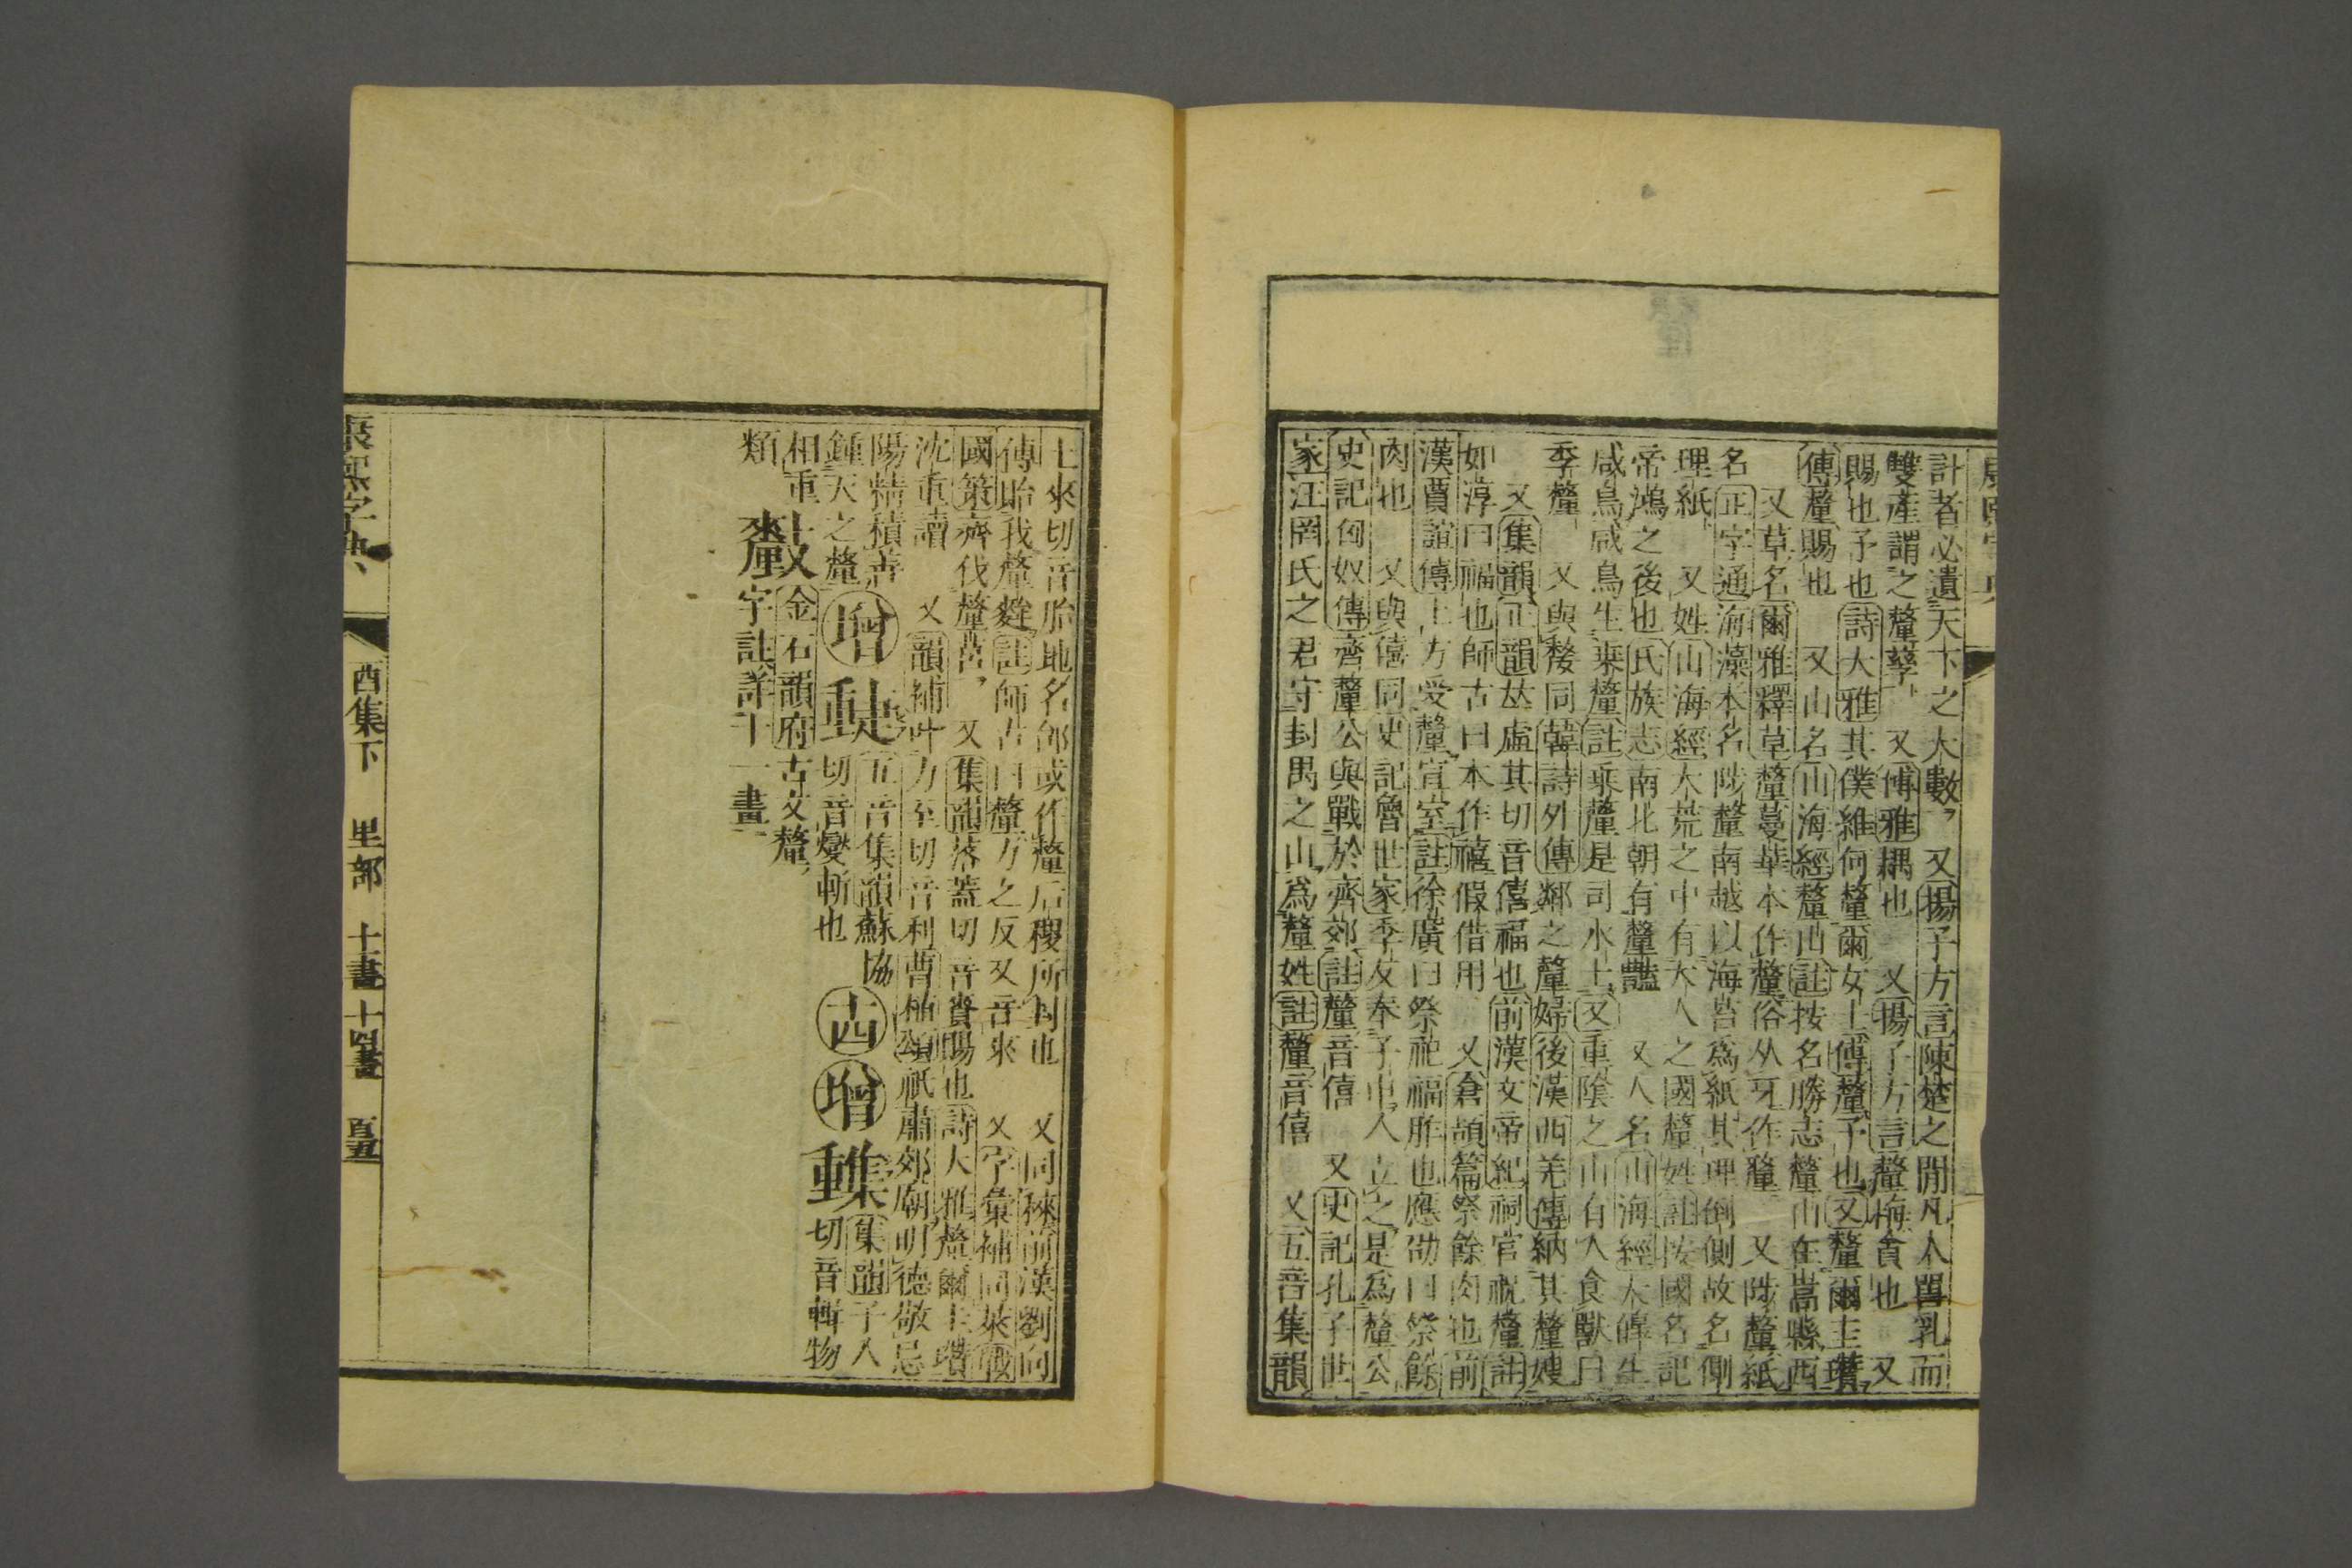 計者必遺天下之大數又揚子方言陳楚之閒凡人嘼乳而
雙產謂之釐孳又博雅耦也又揚子方言釐梅貪也又
賜也予也詩大雅其僕維何釐爾女士傳釐予也又釐爾圭瓚
傳釐賜也又山名山海經釐山註按名勝志釐山在嵩縣西
又草名爾雅釋草釐蔓華本作釐俗从牙作𨤲又陟釐紙
名正字通海藻本名陟釐南越以海苔爲紙其理倒側故名側
理紙又姓山海經大荒之中有大人之國釐姓註按國名記
帝鴻之後也氏族志南北朝有釐豔又人名山海經大皥生
咸鳥咸鳥生乘釐註乘釐是司水土又重陰之山有人食獸曰
季釐又與嫠同韓詩外傳鄰之釐婦後漢西羌傳納其釐嫂
又集韻正韻𠀤虛其切音僖福也前漢文帝紀祠官祝釐註
如淳曰福也師古曰本作禧假借用又倉頡篇祭餘肉也前
漢賈誼傳上方受釐宣室註徐廣曰祭祀福胙也應劭曰祭餘
肉也又與僖同史記魯世家季友奉子申入立之是爲釐公
史記匈奴傳齊釐公與戰於齊郊註釐音僖又史記孔子世
家汪罔氏之君守封禺之山爲釐姓註釐音僖又五音集韻
土來切音胎地名邰或作釐后稷所封也又同秾前漢劉向
傳貽我釐麰註師古曰釐力之反又音來又字彙補同萊戰
國策齊伐釐莒又集韻落蓋切音賚賜也詩大雅釐爾圭瓚
沈重讀又韻補叶力至切音利曹植頌祇肅郊廟明德敬忌
陽精積善鍾天之釐
增 𨤣 五音集韻蘇協切音燮斬也
古 增 𨤥 集韻子入切音輯物相重類
𨤸 字註詳十一畫 金石韻府古文釐
康熙字典 酉集下 里部 十畫 十四畫 百五